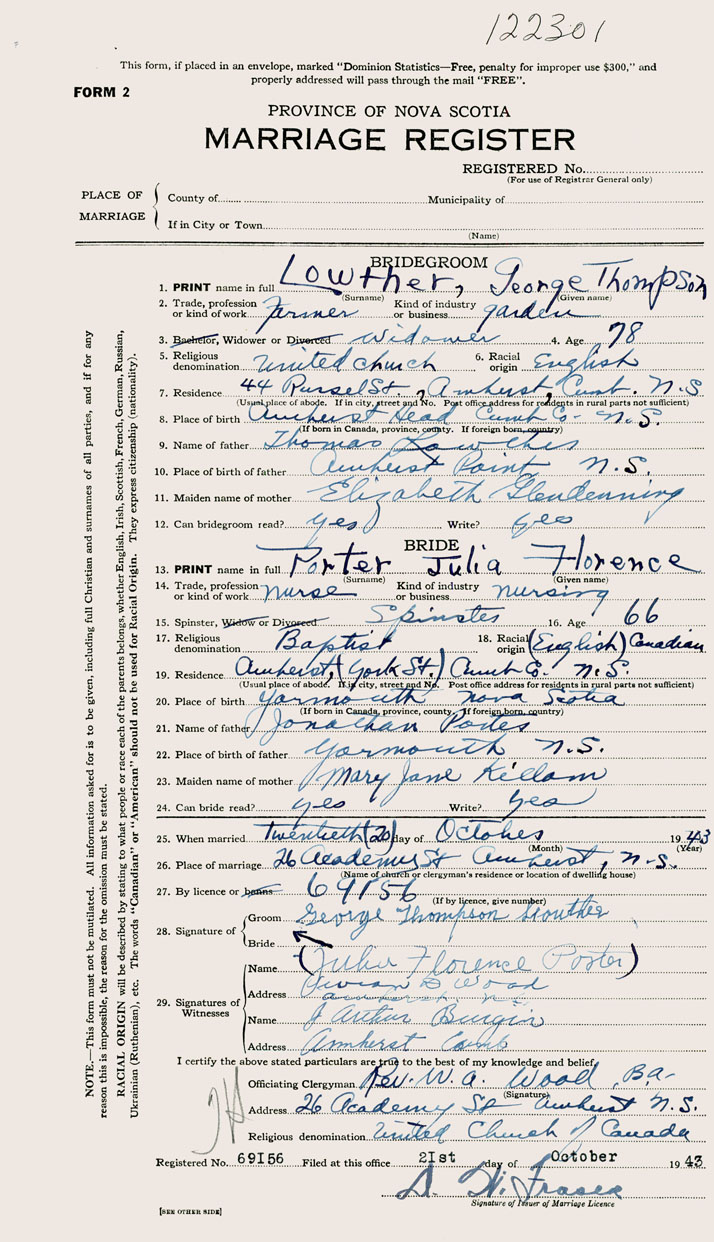 122301
This form, if placed in an envelope, marked "Dominion Statistics—Free, penalty for improper use $300," and
properly addressed will pass through the mail "FREE".
FORM 2
PROVINCE OF NOVA SCOTIA
MARRIAGE REGISTER
REGISTERED No.
(For use of Registrar General only)
PLACE OF MARRIAGE
County of Municipality of
If in City or Town
(Name)
BRIDEGROOM
1. PRINT name in full Lowther, George Thompson
(Surname) (Given name)
2. Trade, profession or kind of work Farmer Kind of industry or business garden
3. Bachelor, Widower or Divorced Widower 4. Age 78
5. Religious denomination United church 6. Racial origin English
7. Residence 44 Russel St, Amherst, Cumb. N.S
(Usual place of abode. If in city, street and No. Post office address for residents in rural parts not sufficient)
8. Place of birth Amherst Head Cumb Co- N.S.
(If born in Canada, province, county. If foreign born, country)
9. Name of father Thomas Lowther
10. Place of birth of father Amherst Point N.S.
11. Maiden name of mother Elizabeth Glendenning
12. Can bridegroom read? yes Write? yes
BRIDE
13. PRINT name in full Porter Julia Florence
(Surname) (Given name)
14. Trade, profession or kind of work nurse Kind of industry or business nursing
15. Spinster, Widow or Divorced Spinster 16. Age 66
17. Religious denomination Baptist 18. Racial origin (English) Canadian
19. Residence Amherst, (York St.) Cumb Co. N.S.
(Usual place of abode. If in city, street and No. Post office address for residents in rural parts not sufficient)
20. Place of birth Yarmouth Nova Scotia
(If born in Canada, province, county. If foreign born, country)
21. Name of father Jonathan Porter
22. Place of birth of father Yarmouth N.S.
23. Maiden name of mother Mary Jane Killam
24. Can bride read? yes Write? yes
25. When married twentieth (20) day of October 1943
(Month) (Year)
26. Place of marriage 26 Academy St Amherst, N.S.
(Name of church or clergyman's residence or location of dwelling house)
27. By licence or banns 69156
(If by licence, give number)
28. Signature of Groom George Thompson Lowther
Bride (Julia Florence Porter)
29. Signatures of Witnesses
Name Vivian D Wood
Address Amherst N.S.
Name J Arthur Burgin
Address Amherst Cumb
I certify the above stated particulars are true to the best of my knowledge and belief.
Officiating Clergyman Rev. W. A. Wood, B.A-
(Signature)
Address 26 Academy St Amherst N.S.
Religious denomination United Church of Canada
Registered No. 69156 Filed at this office 21st day of October 1943
D. W. Fraser
Signature of Issuer of Marriage Licence
[SEE OTHER SIDE]
NOTE.—This form must not be mutilated. All information asked for is to be given, including full Christian and surnames of all parties, and if for any
reason this is impossible, the reason for the omission must be stated.
RACIAL ORIGIN will be described by stating to what people or race each of the parents belongs, whether English, Irish, Scottish, French, German, Russian,
Ukrainian (Ruthenian), etc. The words "Canadian" or "American" should not be used for Racial Origin. They express citizenship (nationality).